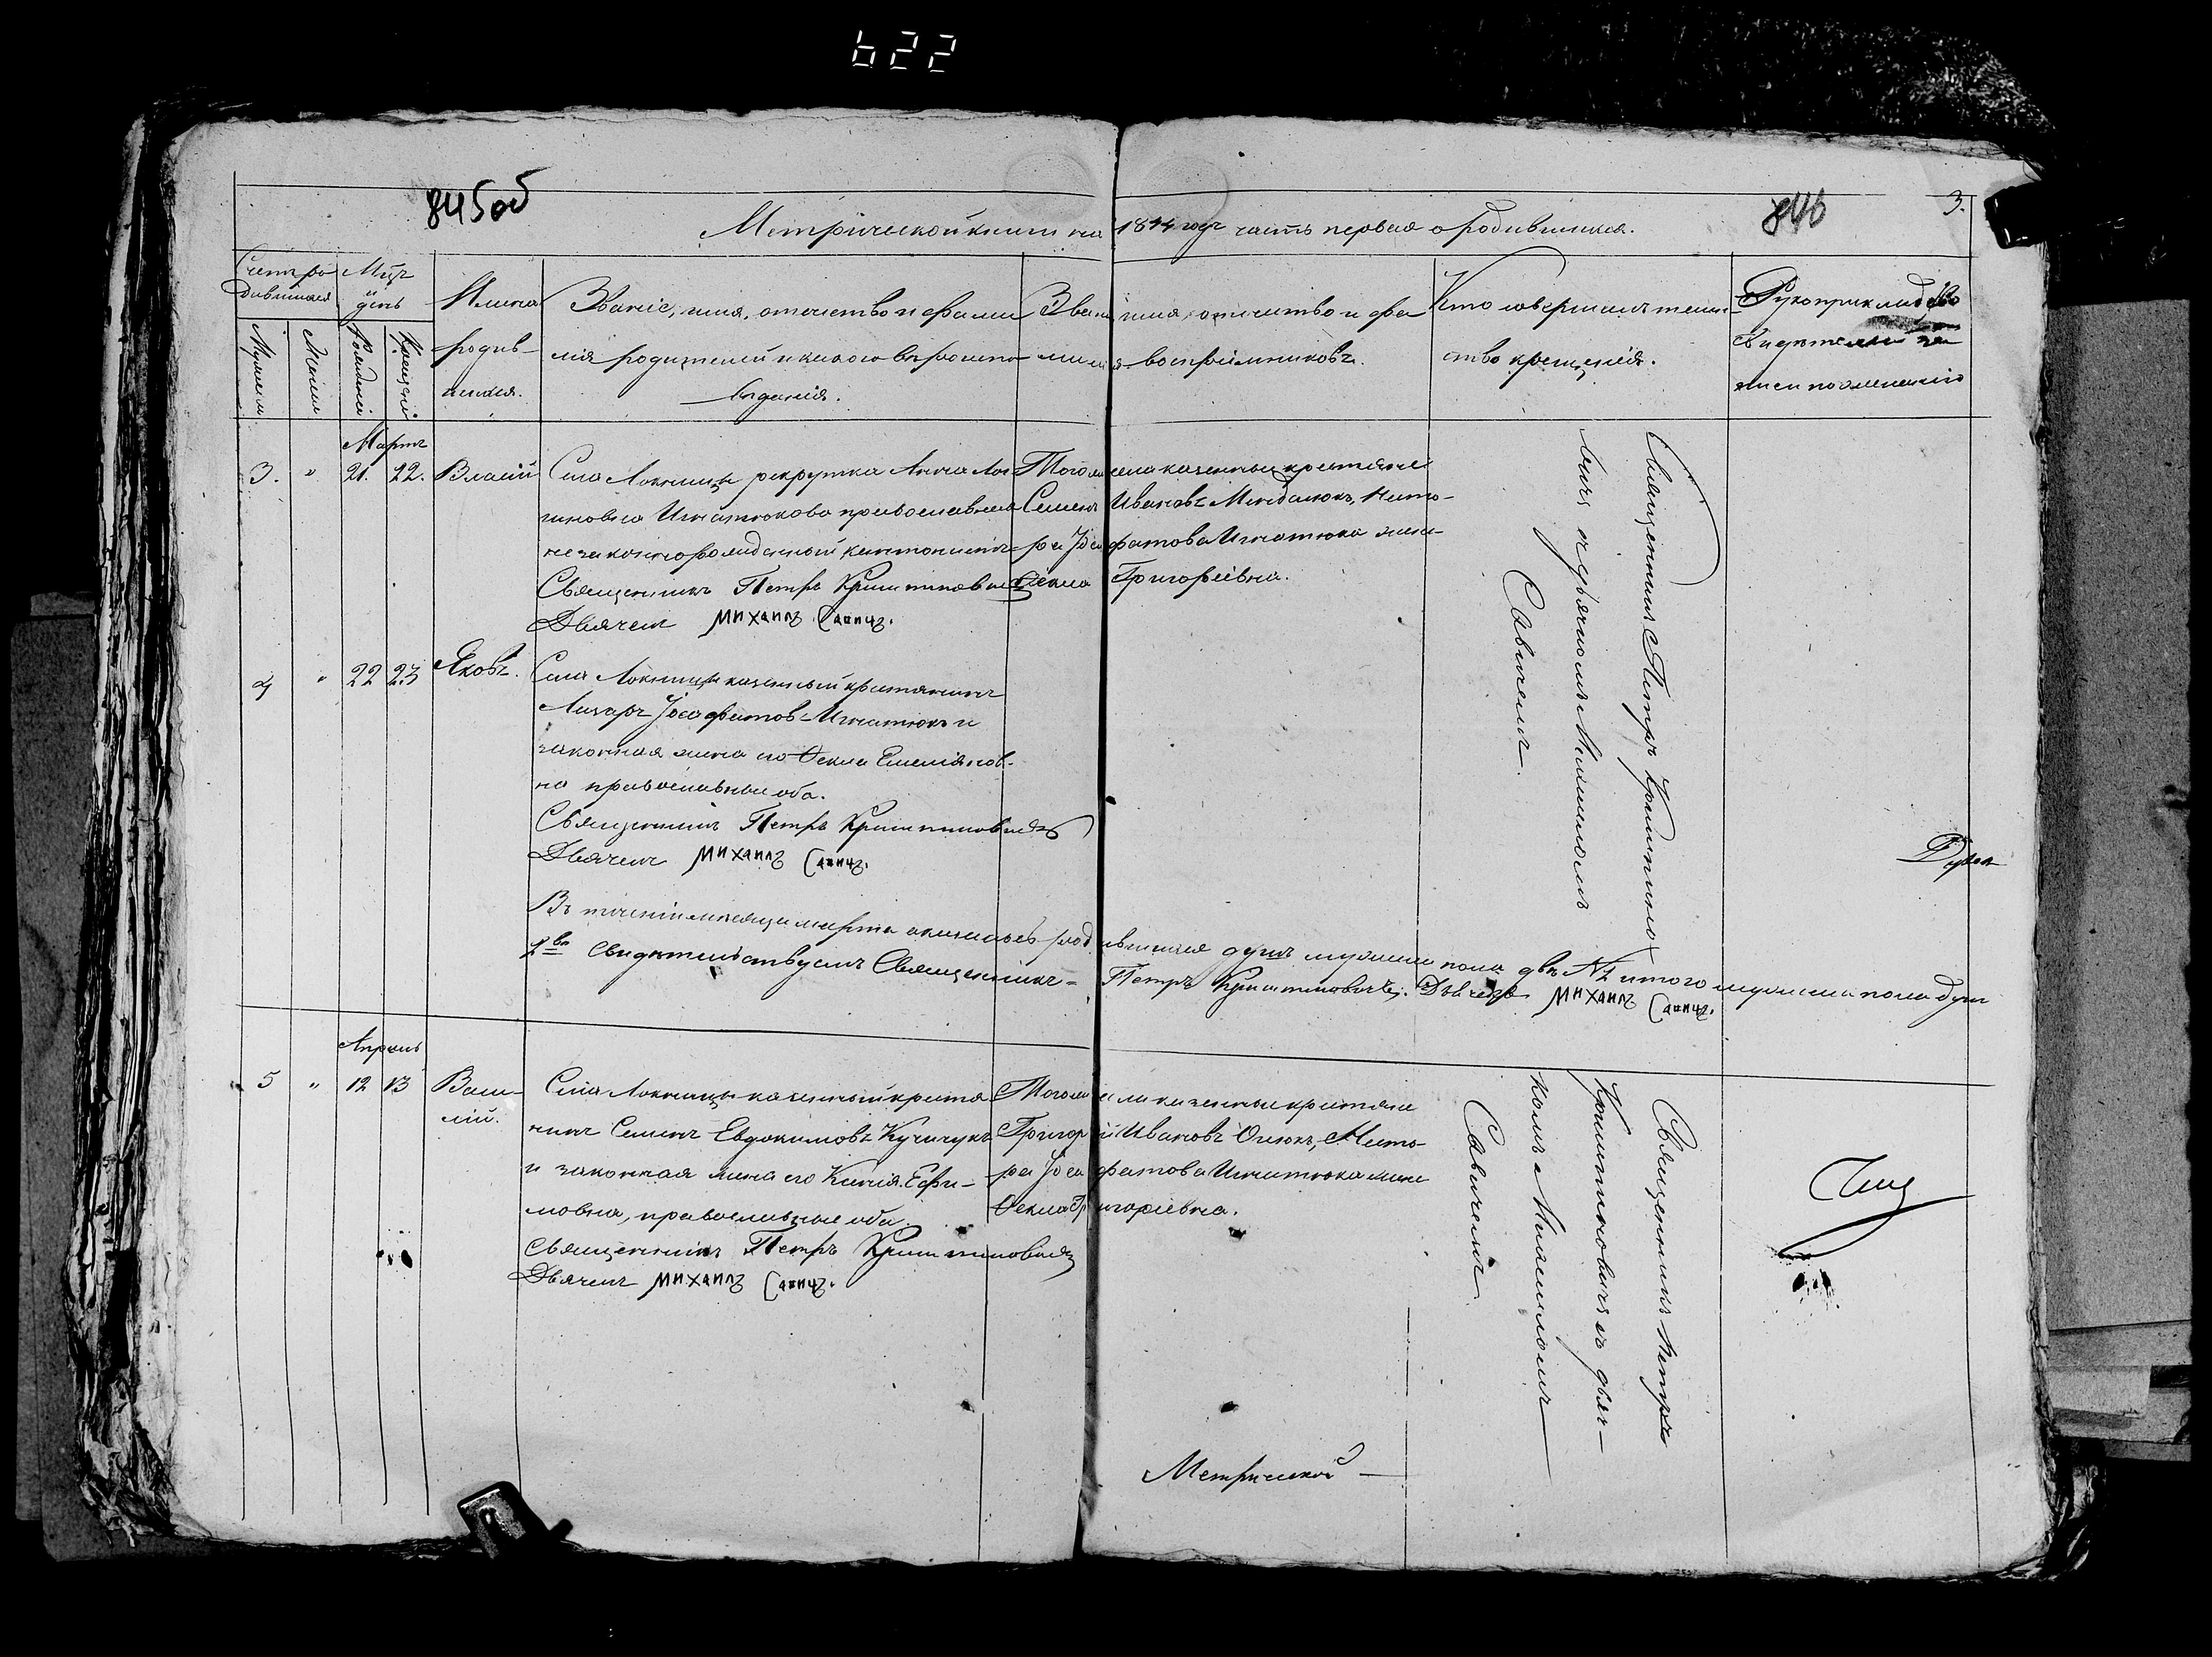 622
845об
846
3.
Метрической книги на 1844 годъ часть первая о родившихся.
Счетъ ро
дившихся
Мужеска
Женска
Мцъ
и
день
Рожденія
Крещенія
Имена
родив-
шихся.
Званіе, имя, отчество и фами
лія родителей и какого вѣроиспо-
вѣданія.
Званіе имя, отчество и фа
милія воспріемниковъ.
Кто совершалъ таин-
ство крещенія.
Рукоприкладство
свидѣтелей за
писи по желанію
Мартъ
3. " 21. 22. Власій
Села Локницы рекрутка Анна Лон
гиновна Игнатюкова православная
незаконнорожденный кантонистъ
Священникъ Петръ Крыштиновичъ
Дьячекъ Михаилъ Савичъ.
Того же села казенные крестяне
Семенъ Ивановъ Миндалюкъ, Несто-
ра Іоса фатова Игнатюка жена
Фекла Григоріевна.
Священникъ Петръ Крыштино
вичъ съ дьячкомъ Михаиломъ
Савичемъ.
4 " 22 23 Яковъ.
Села Локницы казенный крестянинъ
Лазаръ Іосафатовъ Игнатюкъ и
законная жена его Фекла Емеліянов-
на православные оба.
Священникъ Петръ Крыштиновичъ
Дьячекъ Михаилъ Савичъ.
Въ теченіи месяца марта оказалось родившихся душъ мужеска пола двѣ №2 итого мужеска пола душъ
2ве свидѣтельствуемъ Священникъ Петръ Крыштиновичъ. Дьячекъ Михаилъ Савичъ.
Апрель
5 " 12 13 Васи-
лій.
Села Локницы казенный крестя
нинъ Семенъ Евдокимовъ Кучичукъ
и законная жена его Ксенія Ефи-
мовна, православные оба.
Священникъ Петръ Крыштиновичъ
Дьячекъ Михаилъ Савичъ.
Того же села казенные крестяне
Григорій Ивановъ Оцюкъ, Несто-
ра Іосафатова Игнатюка жена
Фекла Григоріевна.
Священникъ Петръ
Крыштиновичъ съ дьяч-
комъ Михаиломъ
Савичемъ
Метрической